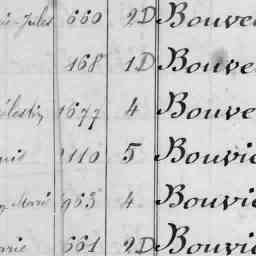 Jules 660 2D Bouve
168 1D Bouve
Célestin 1677 4 Bouve
2110 5 Bouvie
Marie 963 4 Bouvie
661 2D Bouvie